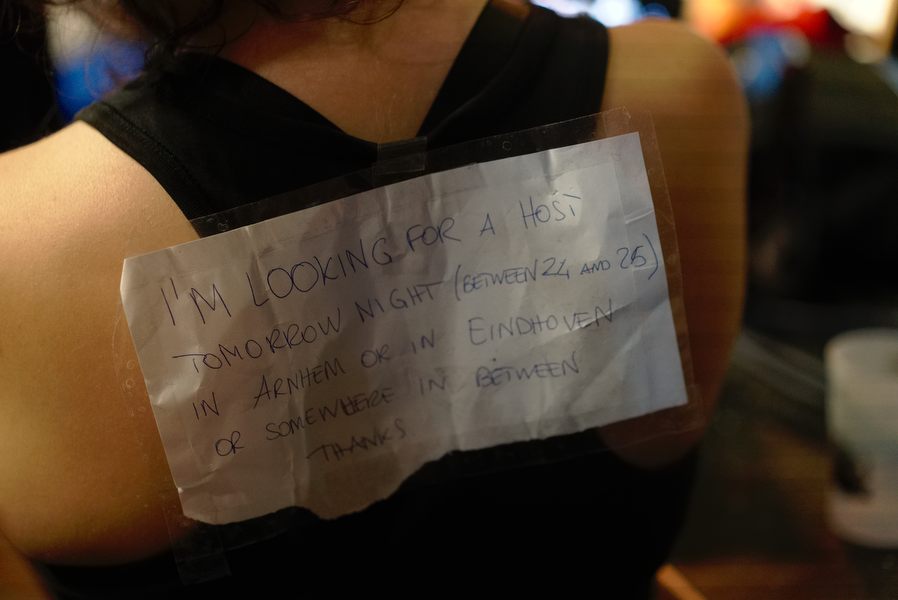 I'M LOOKING FOR A HOST
TOMORROW NIGHT (BETWEEN 24 AND 25)
IN ARNHEM OR IN EINDHOVEN
OR SOMEWHERE IN BETWEEN
THANKS